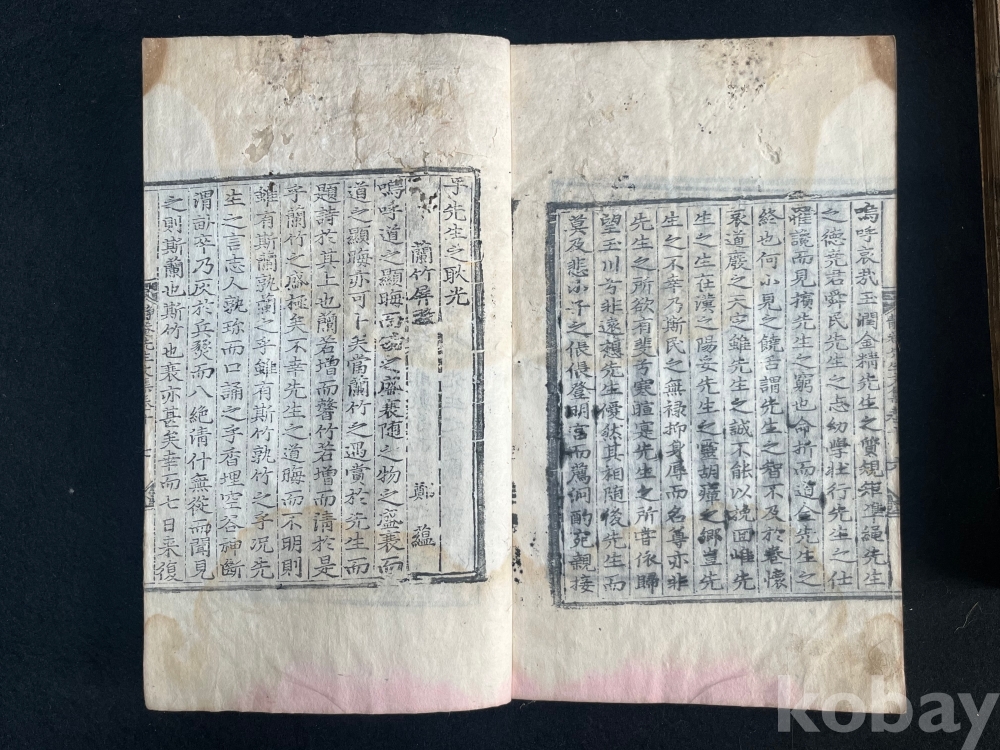 嗚呼哀哉玉潤金精先生之質規矩準繩先生
之德堯君舜民先生之志幼學壯行先生之仕
罹讒而見擯先生之窮也命折而道全先生之
終也何小兒之饒舌謂先生之智不及於卷懷
衰道廢之天定雖先生之誠不能以挽回惟先
生之生在漢之陽妥先生之靈胡瓊之鄉豈先
生之不幸乃斯民之無祿抑身辱而名尊亦非
先生之所欲有斐芳寒暄寔先生所嘗依歸
望玉川兮非遠想先生儼然其相隨後先生而
莫及悲小子之倀倀登明宮而薦泂酌宛親接
乎先生之耿光
蘭竹屛跋 鄭蘊
嗚呼道之顯晦而物之盛衰隨之物之盛衰而
道之顯晦亦可卜矣當蘭竹之遇賞於先生而
題詩於其上也蘭若增而馨竹若增而淸於是
乎蘭竹之盛極矣不幸先生之道晦而不明則
雖有斯蘭孰蘭之乎雖有斯竹孰竹之乎況先
生之言志人孰珍而口誦之乎香埋空谷神斷
渭畝卒乃灰於兵燹而八絶淸什無從而聞見
之則斯蘭也斯竹也衰亦甚矣幸而七日來復
kobay